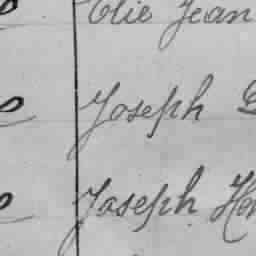 Elie Jean
Joseph
Joseph